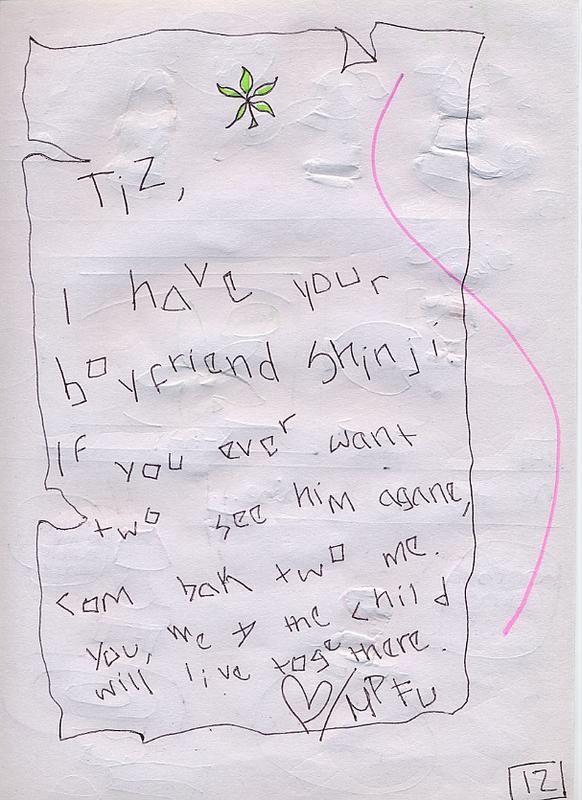 TiZ,
I have your
boyfriend Shinji.
If you ever want
two see him agane,
com bak two me.
You, me & the child
will live togethere.
MPFU
12